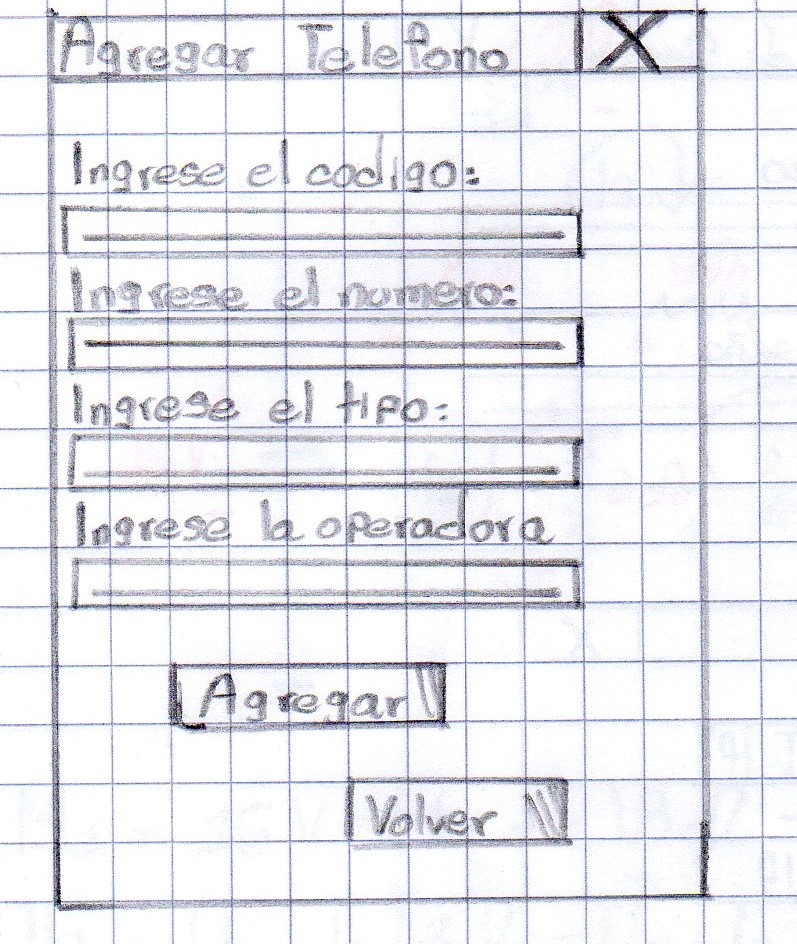 Agregar Telefono X
Ingrese el codigo:
Ingrese el numero:
Ingrese el tipo:
Ingrese la operadora
Agregar
Volver